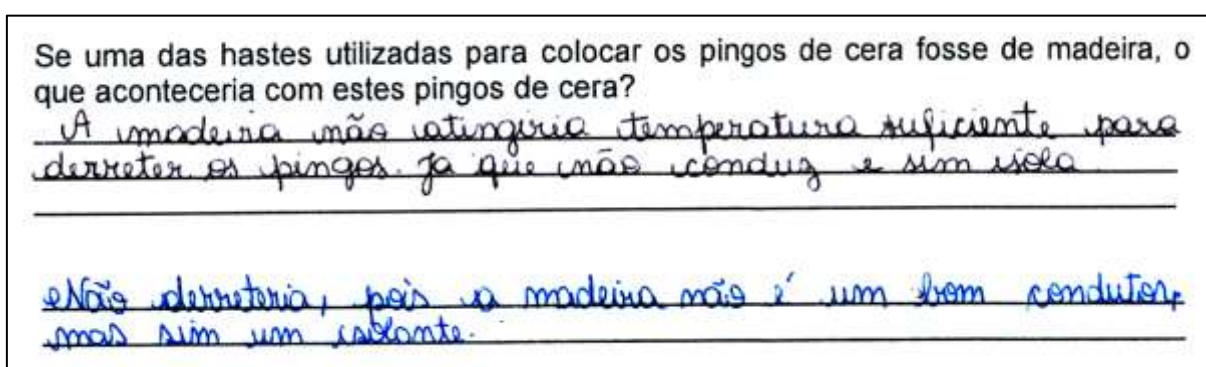 Se uma das hastes utilizadas para colocar os pingos de cera fosse de madeira, o
que aconteceria com estes pingos de cera?
A madeira não atingiria temperatura suficiente para
derreter os pingos. Ja que não conduz e sim isola.
Não derreteria, pois a madeira não é um bom condutor,
mas sim um isolante.